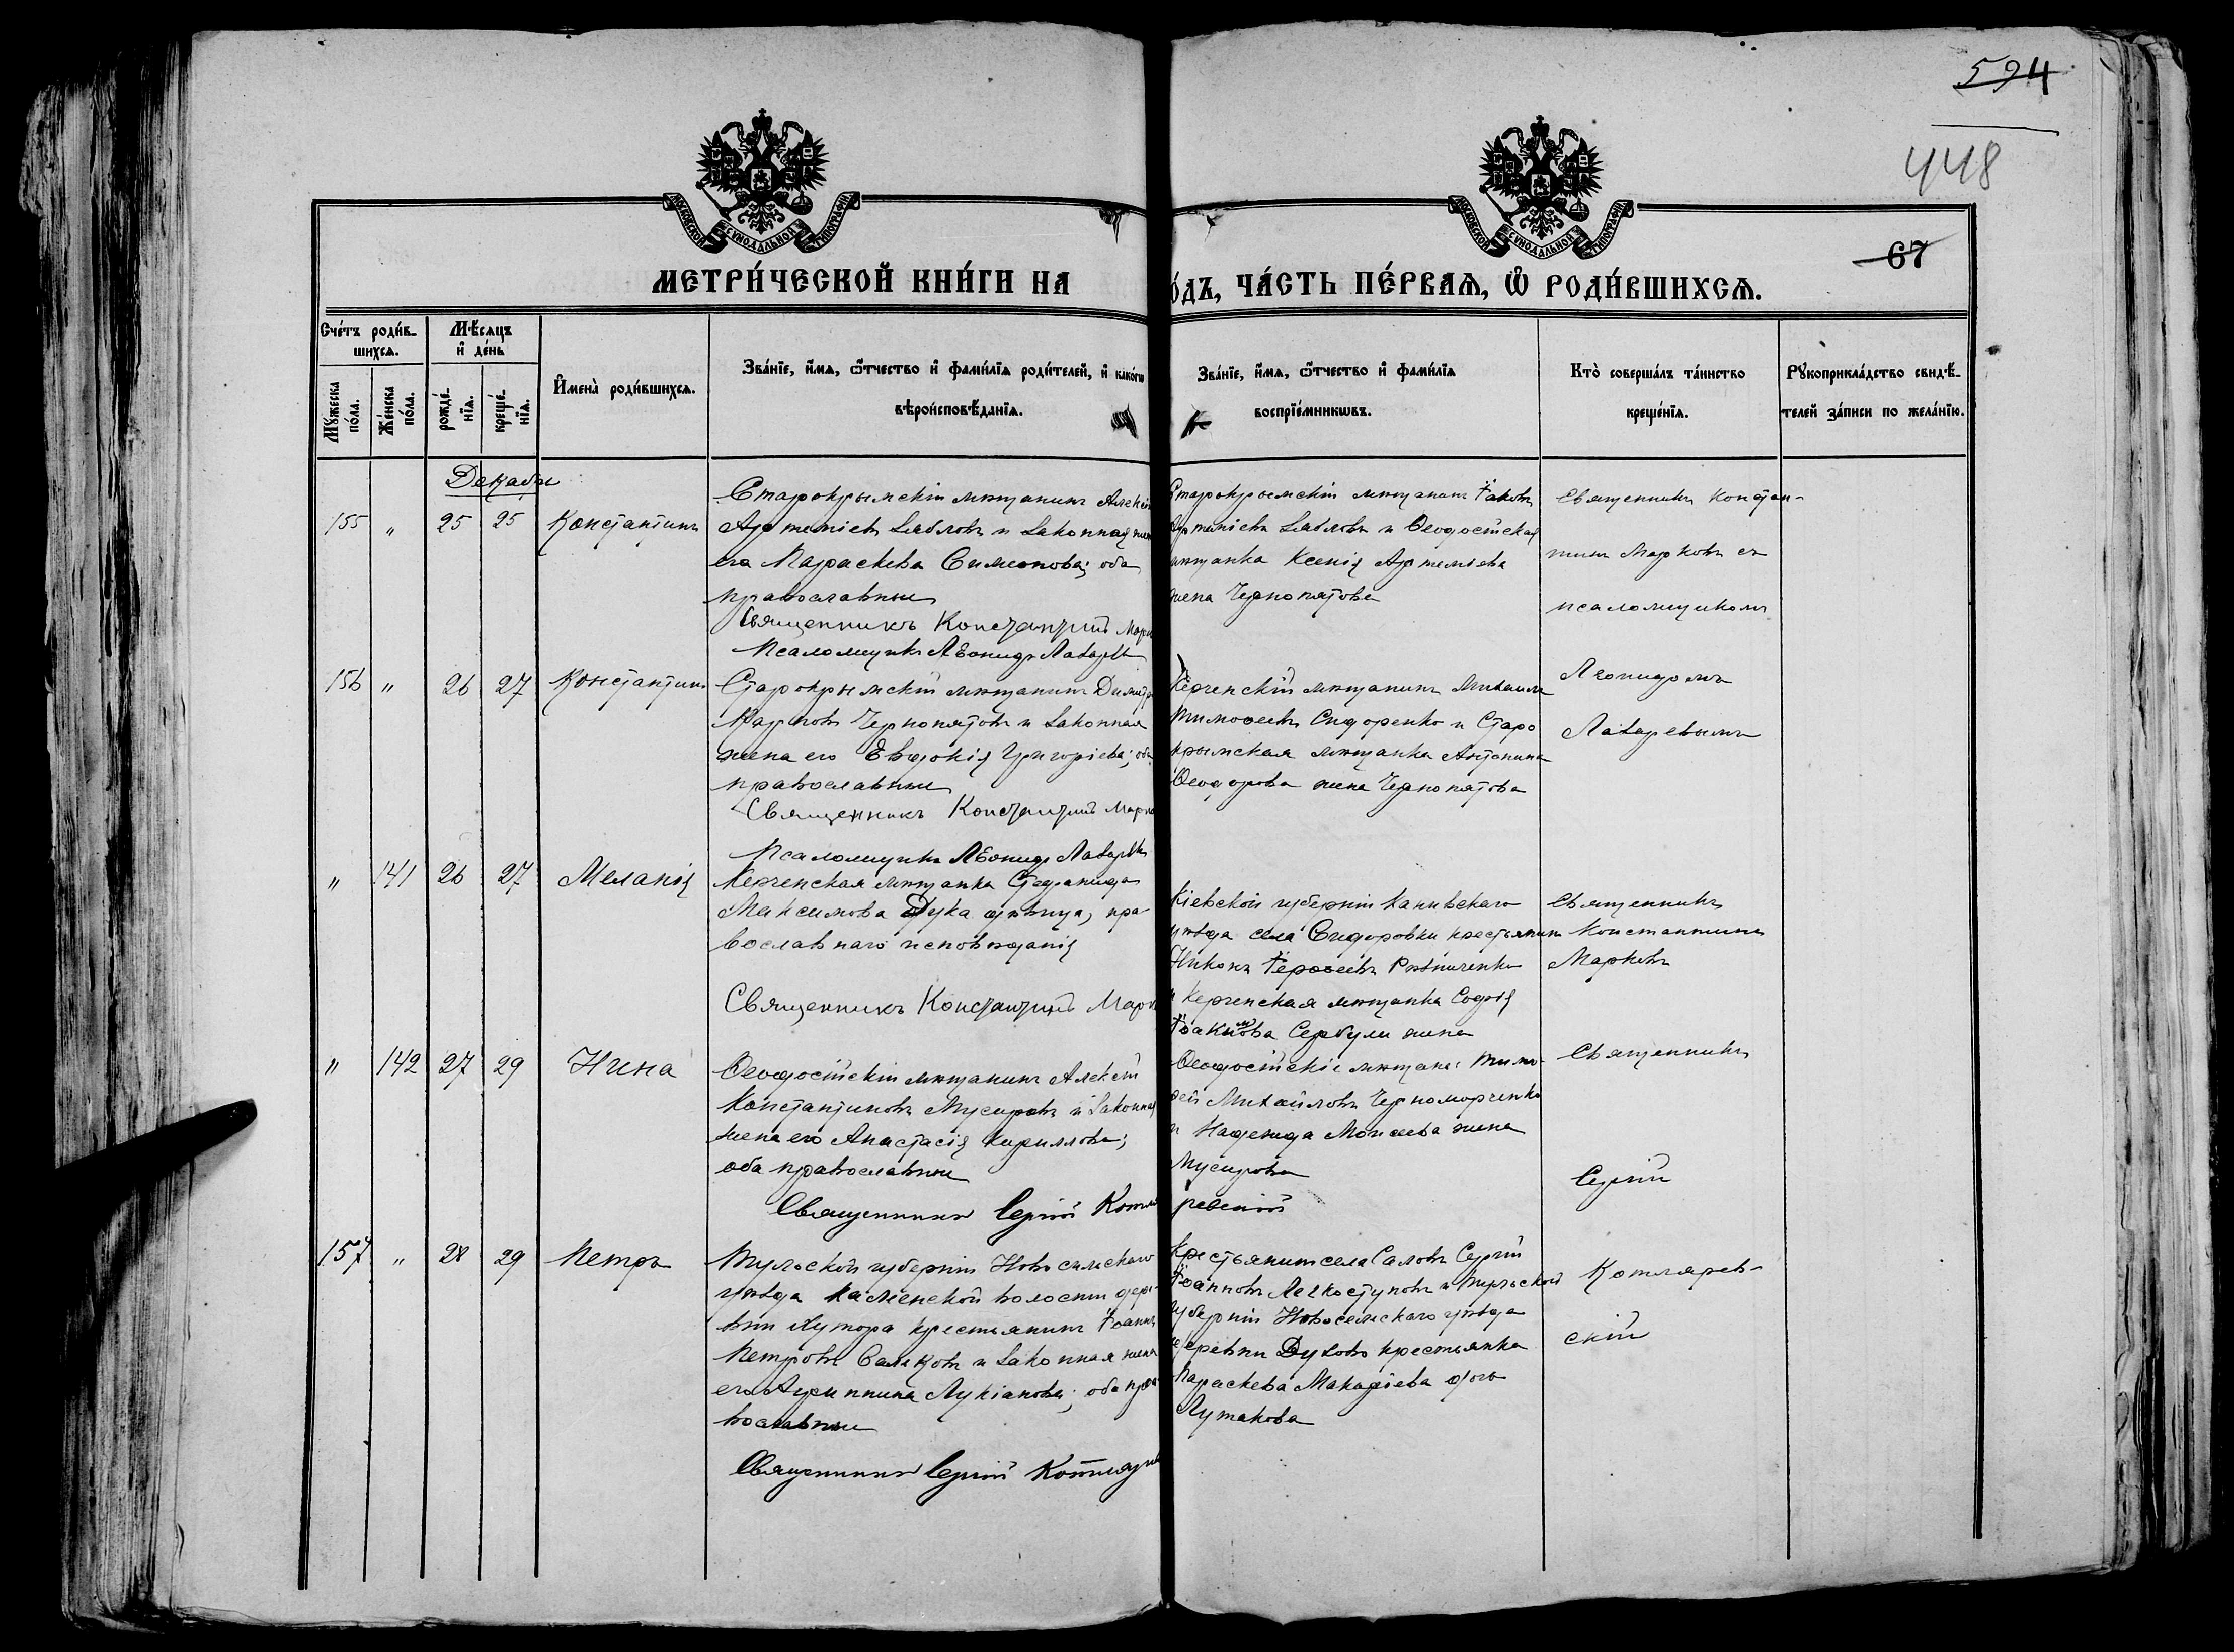 594
448
67
МОСКОВСКОЙ СѴНОДАЛЬНОЙ ТИПОГРАФІИ
МОСКОВСКОЙ СѴНОДАЛЬНОЙ ТИПОГРАФІИ
МЕТРИ́ЧЕСКОЙ КНИ́ГИ НА
О́ДЪ, ЧА́СТЬ ПЕ́РВАѦ, Ѡ҆ РОДИ́ВШИХСѦ.
Сче́тъ роди́в-
шихсѧ.
Мꙋ́жеска по́ла.
Же́нска по́ла.
Мѣ́сѧцъ
и҆ де́нь
рожде́-
нїѧ.
креще́-
нїѧ.
И҆мена̀ роди́вшихсѧ.
Зва́нїе, и҆́мѧ, ѻ҆́тчество и҆ фами́лїѧ роди́телей, и҆ како́гѡ
вѣроисповѣ́данїѧ.
Зва́нїе, и҆́мѧ, ѻ҆́тчество и҆ фами́лїѧ
воспрїе́мникѡвъ.
Кто̀ соверша́лъ та́инство
креще́нїѧ.
Рꙋкоприкла́дство свидѣ́-
телей за́писи по жела́нїю.
Декабрь
155 " 25 25 Константинъ
Старокрымскій мѣщанинъ Алексій
Артеміевъ Зябловъ и законная жен
его Параскева Симеонова; оба
православные
Священникъ Константинъ Марк
Псаломщикъ Леонидъ Лазарев
Старокрымскій мѣщанинъ Іаковъ
Артеміевъ Зябловъ и Ѳеодосійская
мѣщанка Ксенія Артеміева
жена Чернопятова
Священникъ Констан-
тинъ Марковъ съ
псаломщикомъ
Леонидомъ
Лазаревымъ
156 " 26 27 Константинъ
Старокрымскій мѣщанинъ Димитр
Марковъ Чернопятовъ и законная
жена его Евдокія Григоріева; оба
православные
Священникъ Константинъ Марко
Псаломщикъ Леонидъ Лазарев
Керченскій мѣщанинъ Михаилъ
Тимоѳеевъ Сидоренко и Старо
крымская мѣщанка Антонина
Ѳеодорова жена Чернопятова
" 141 26 27 Меланія
Керченская мѣщанка Стефанида
Максимова Дука дѣвица, пра-
вославнаго исповѣданія
Священникъ Константинъ Марк
Кіевской губерніи Каневскаго
уѣзда села Сидоровки крестьянинъ
Никонъ Іероѳеевъ Рѣзниченко
и Керченская мѣщанка Софія
Іоакимова Сербули жена
Священникъ
Константинъ
Марковъ
" 142 27 29 Нина
Ѳеодосійскій мѣщанинъ Алексѣй
Константиновъ Мусировъ и законная
жена его Анастасія Кириллова;
оба православные
Священникъ Сергій Котля
ревскій
Ѳеодосійскіе мѣщане: Тимо-
ѳей Михайловъ Черноморченко
и Надежда Моисеева жена
Мусирова
Священникъ
Сергій
Котлярев-
скій
157 " 28 29 Петръ
Тульской губерніи Новосильскаго
уѣзда Каменской волости дере
вни Хутора крестьянинъ Іоаннъ
Петровъ Саликовъ и законная жена
его Агриппина Лукіанова; оба пра
вославные
Священникъ Сергій Котлярев
Крестьянинъ села Саловъ Сергій
Іоанновъ Легкоступовъ и Тульской
губерніи Новосильскаго уѣзда
деревни Духово крестьянка
Параскева Макаріева
Лутакова